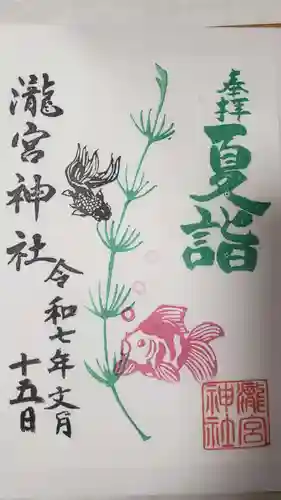 奉拝
夏詣
令和七年文月
十五日
瀧宮神社
瀧宮
神社